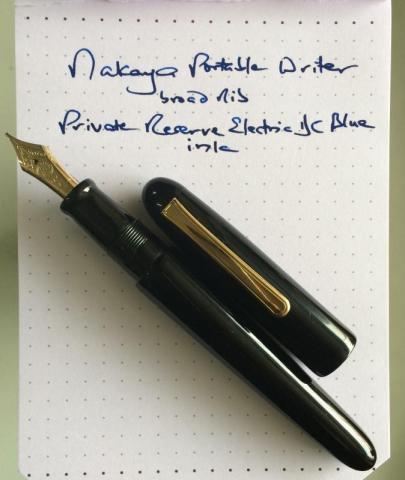 Nakaya Portable Writer
broad nib
Private Reserve Electric DC Blue
ink